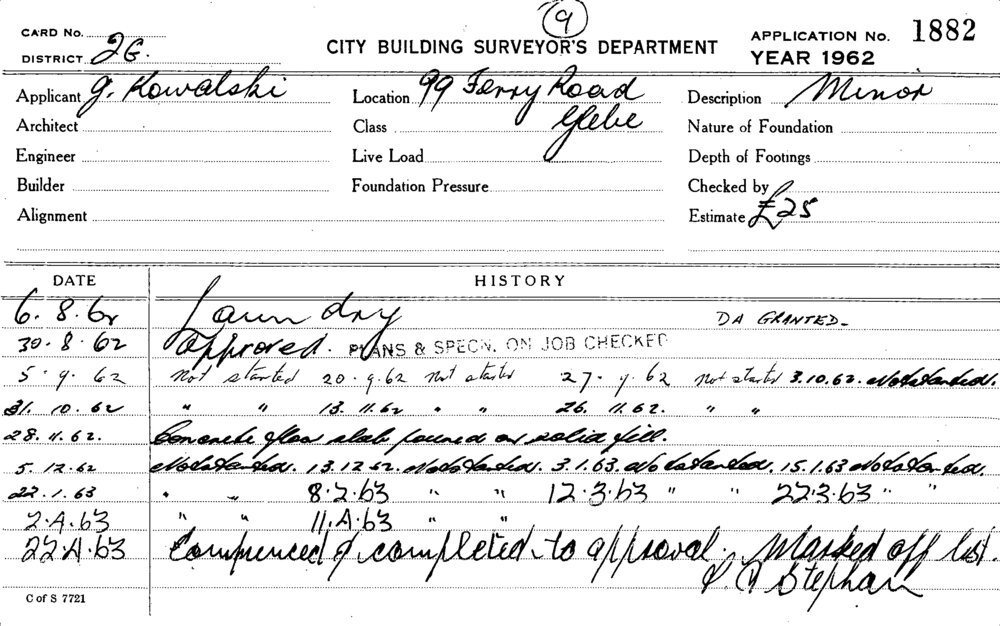 9
CARD No.
CITY BUILDING SURVEYOR'S DEPARTMENT
APPLICATION No. 1882
DISTRICT 2G.
YEAR 1962
Applicant G. Kowalski
Location 99 Ferry Road
Description Minor
Architect
Class Glebe
Nature of Foundation
Engineer
Live Load
Depth of Footings
Builder
Foundation Pressure
Checked by
Alignment
Estimate £25
DATE HISTORY
6.8.62 Laundry DA GRANTED.
30.8.62 Approved. PLANS & SPECN. ON JOB CHECKED
5.9.62 Not started 20.9.62 Not started 27.9.62 Not started 3.10.62. Not started.
31.10.62 " " 13.11.62 " " 26.11.62. " "
28.11.62. Concrete floor slab poured on solid fill.
5.12.62 Not started. 13.12.62. Not started. 3.1.63. Not started. 15.1.63 Not started.
22.1.63 " " 8.2.63 " " 12.3.63 " " 22.3.63 " "
2.4.63 " " 11.4.63 " "
22.4.63 Commenced & completed to approval. Marked off list.
Stephan
C of S 7721